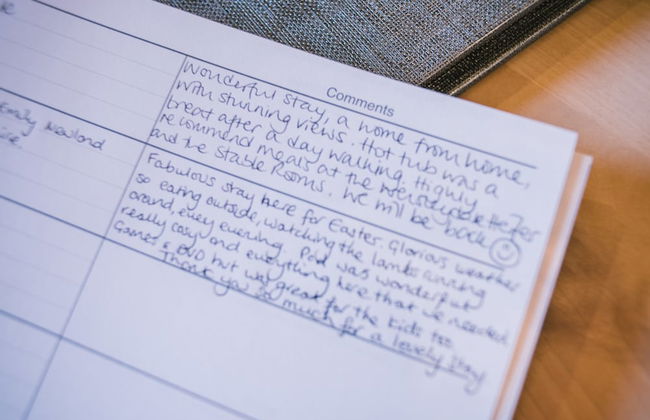 Comments
Wonderful stay, a home from home,
with stunning views. Hot tub was a
treat after a day walking. Highly
recommend meals at the
and the Stable Rooms. We will be back
Emily
Fabulous stay here for Easter. Glorious weather
so eating outside, watching the lambs running
around, every evening. Pod was wonderful
really cosy and everything here that we needed
Games & DVD but was great for the kids too.
Thank you so much for a lovely stay